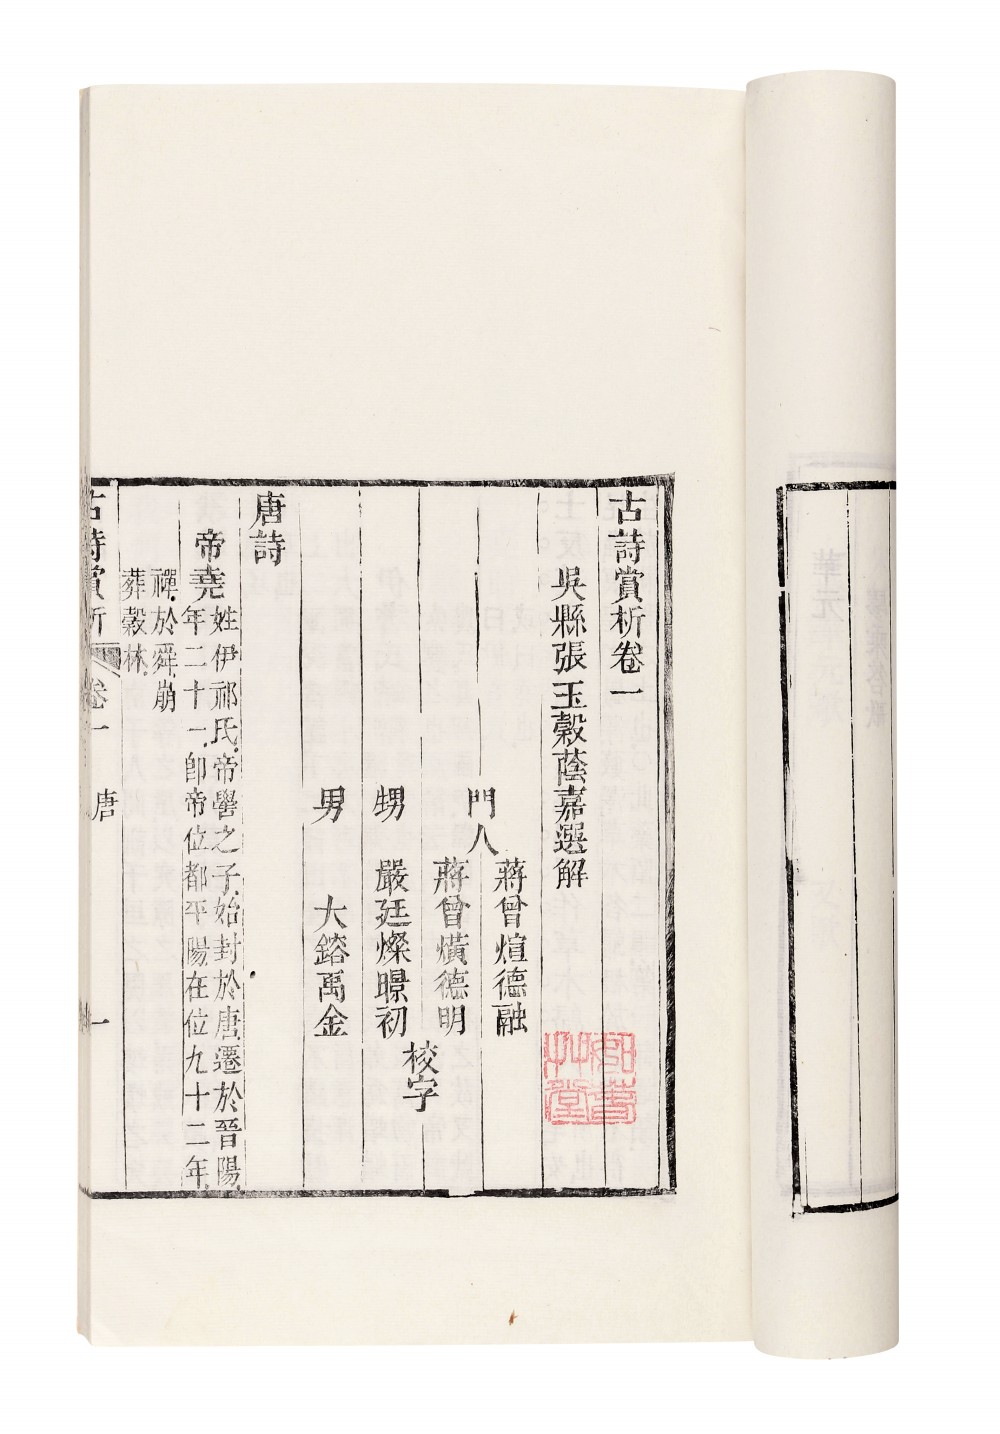 古詩賞析卷一
吳縣張玉穀蔭嘉選解
門人
蔣曾煊德融
蔣曾熿德明
甥
嚴廷燦暻初
校字
男
大鎔禹金
唐詩
帝堯
姓伊祁氏帝嚳之子始封於唐遷於晉陽
年二十一卽帝位都平陽在位九十二年
禪於舜崩
葬穀林
古詩賞析
卷一
唐
一
草堂